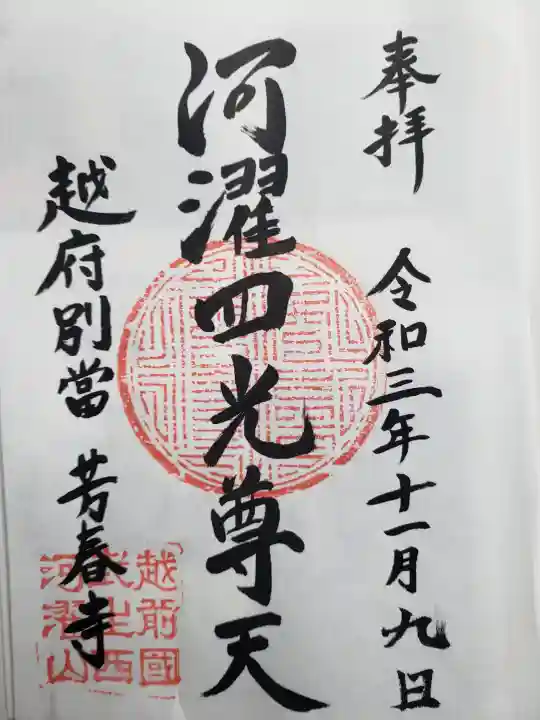 奉拝 令和三年十一月九日
河濯四光尊天
越府別當 芳春寺
越前國
武生西
河濯山